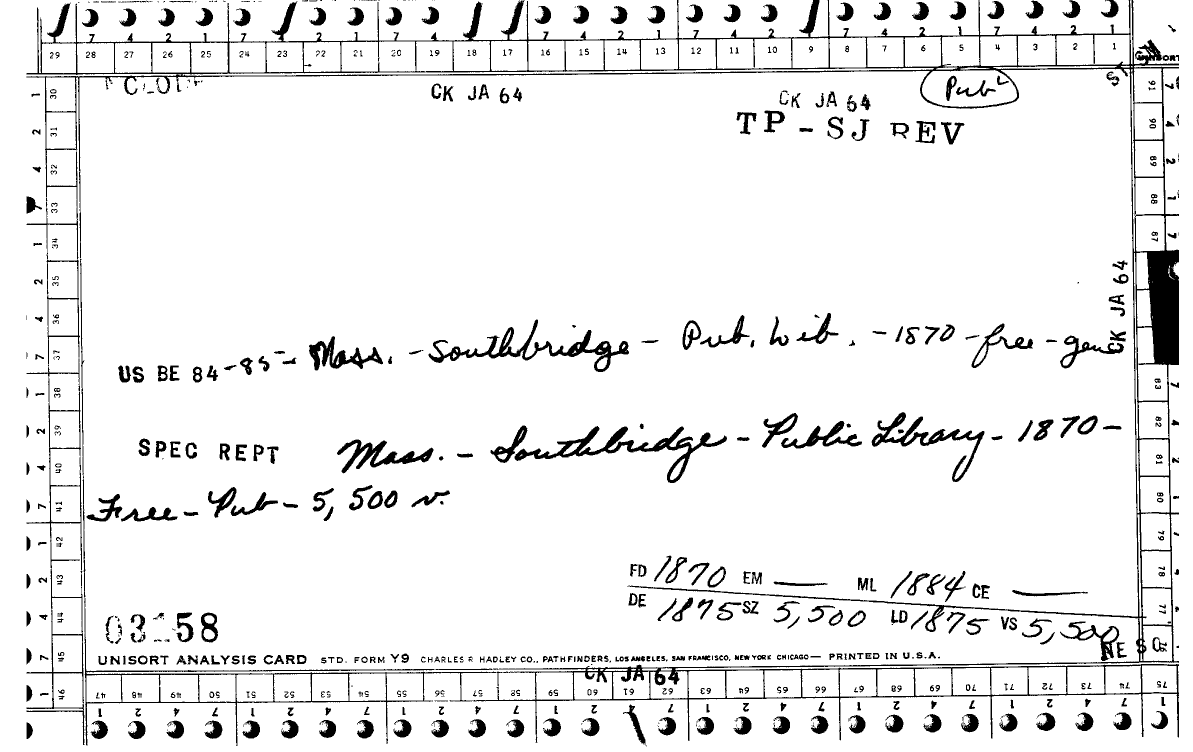 7 4 2 1 7 4 2 1 7 4 2 1 7 4 2 1 7 4 2 1
29 28 27 26 25 24 23 22 21 20 19 18 17 16 15 14 13 12 11 10 9 8 7 6 5 4 3 2 1
CK JA 64
CK JA 64
Pub L
TP - SJ REV
CK JA 64
US BE 84-85 - Mass. - Southbridge - Pub. Lib. - 1870 - free - gen
SPEC REPT Mass. - Southbridge - Public Library - 1870 -
Free - Pub - 5,500 v.
FD 1870 EM — ML 1884 CE —
DE 1875 SZ 5,500 LD 1875 VS 5,500
03158
NE S
UNISORT ANALYSIS CARD STD. FORM Y9 CHARLES R HADLEY CO., PATHFINDERS, LOS ANGELES, SAN FRANCISCO, NEW YORK CHICAGO — PRINTED IN U.S.A.
CK JA 64
30 31 32 33 34 35 36 37 38 39 40 41 42 43 44 45 46
91 90 89 88 87 83 82 81 80 79 78 77
47 48 49 50 51 52 53 54 55 56 57 58 59 60 61 62 63 64 65 66 67 68 69 70 71 72 73 74 75